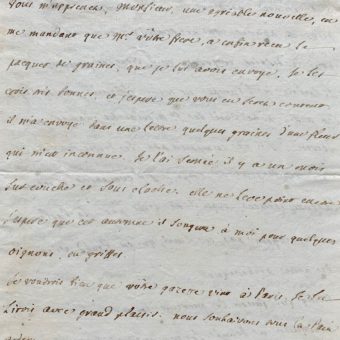 vous m'apprenez, Monsieur, une agréable nouvelle, en
me mandant que Mr votre frere, a enfin reçu le
pacquet de graines, que je lui avois envoyé, je les
crois tres bonnes et j'espere que vous en serez content
il m'a envoyé dans une lettre quelques graines d'une fleur
qui m'est inconnue je l'ai semée il y a un mois
sur couche et sous cloche. elle ne leve point encore
j'espere que cet automne il songera à moi pour quelques
oignons, ou griffes
je voudrois bien que votre gazette vint à Paris, je la
lirois avec grand plaisir. nous souhaitons tous la Paix